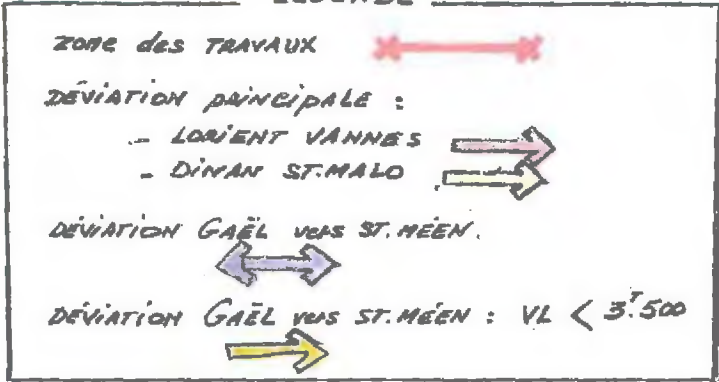 zone des TRAVAUX
DÉVIATION PRINCIPALE :
- LORIENT VANNES
- DINAN ST.MALO
DÉVIATION GAËL vers ST.MÉEN.
DÉVIATION GAËL vers ST.MÉEN : VL < 3T.500